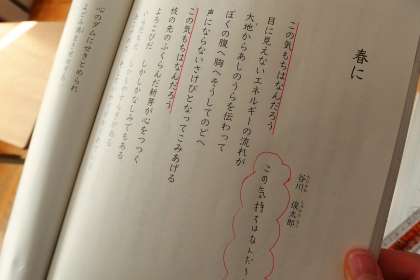 春に
谷川 俊太郎
たにかわ しゅんたろう
この気もちはなんだろう
目に見えないエネルギーの流れが
大地からあしのうらを伝わって
ぼくの腹へ胸へそうしてのどへ
声にならないさけびとなってこみあげる
この気もちはなんだろう
枝の先のふくらんだ新芽が心をつつく
よろこびだ しかしかなしみでもある
心のダムにせきとめられ
この気持ちはなんだ